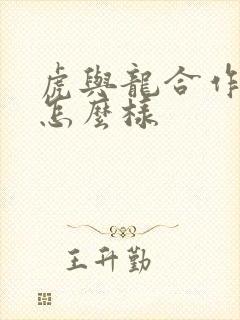 虎與龍合作
怎麼樣
王升勤